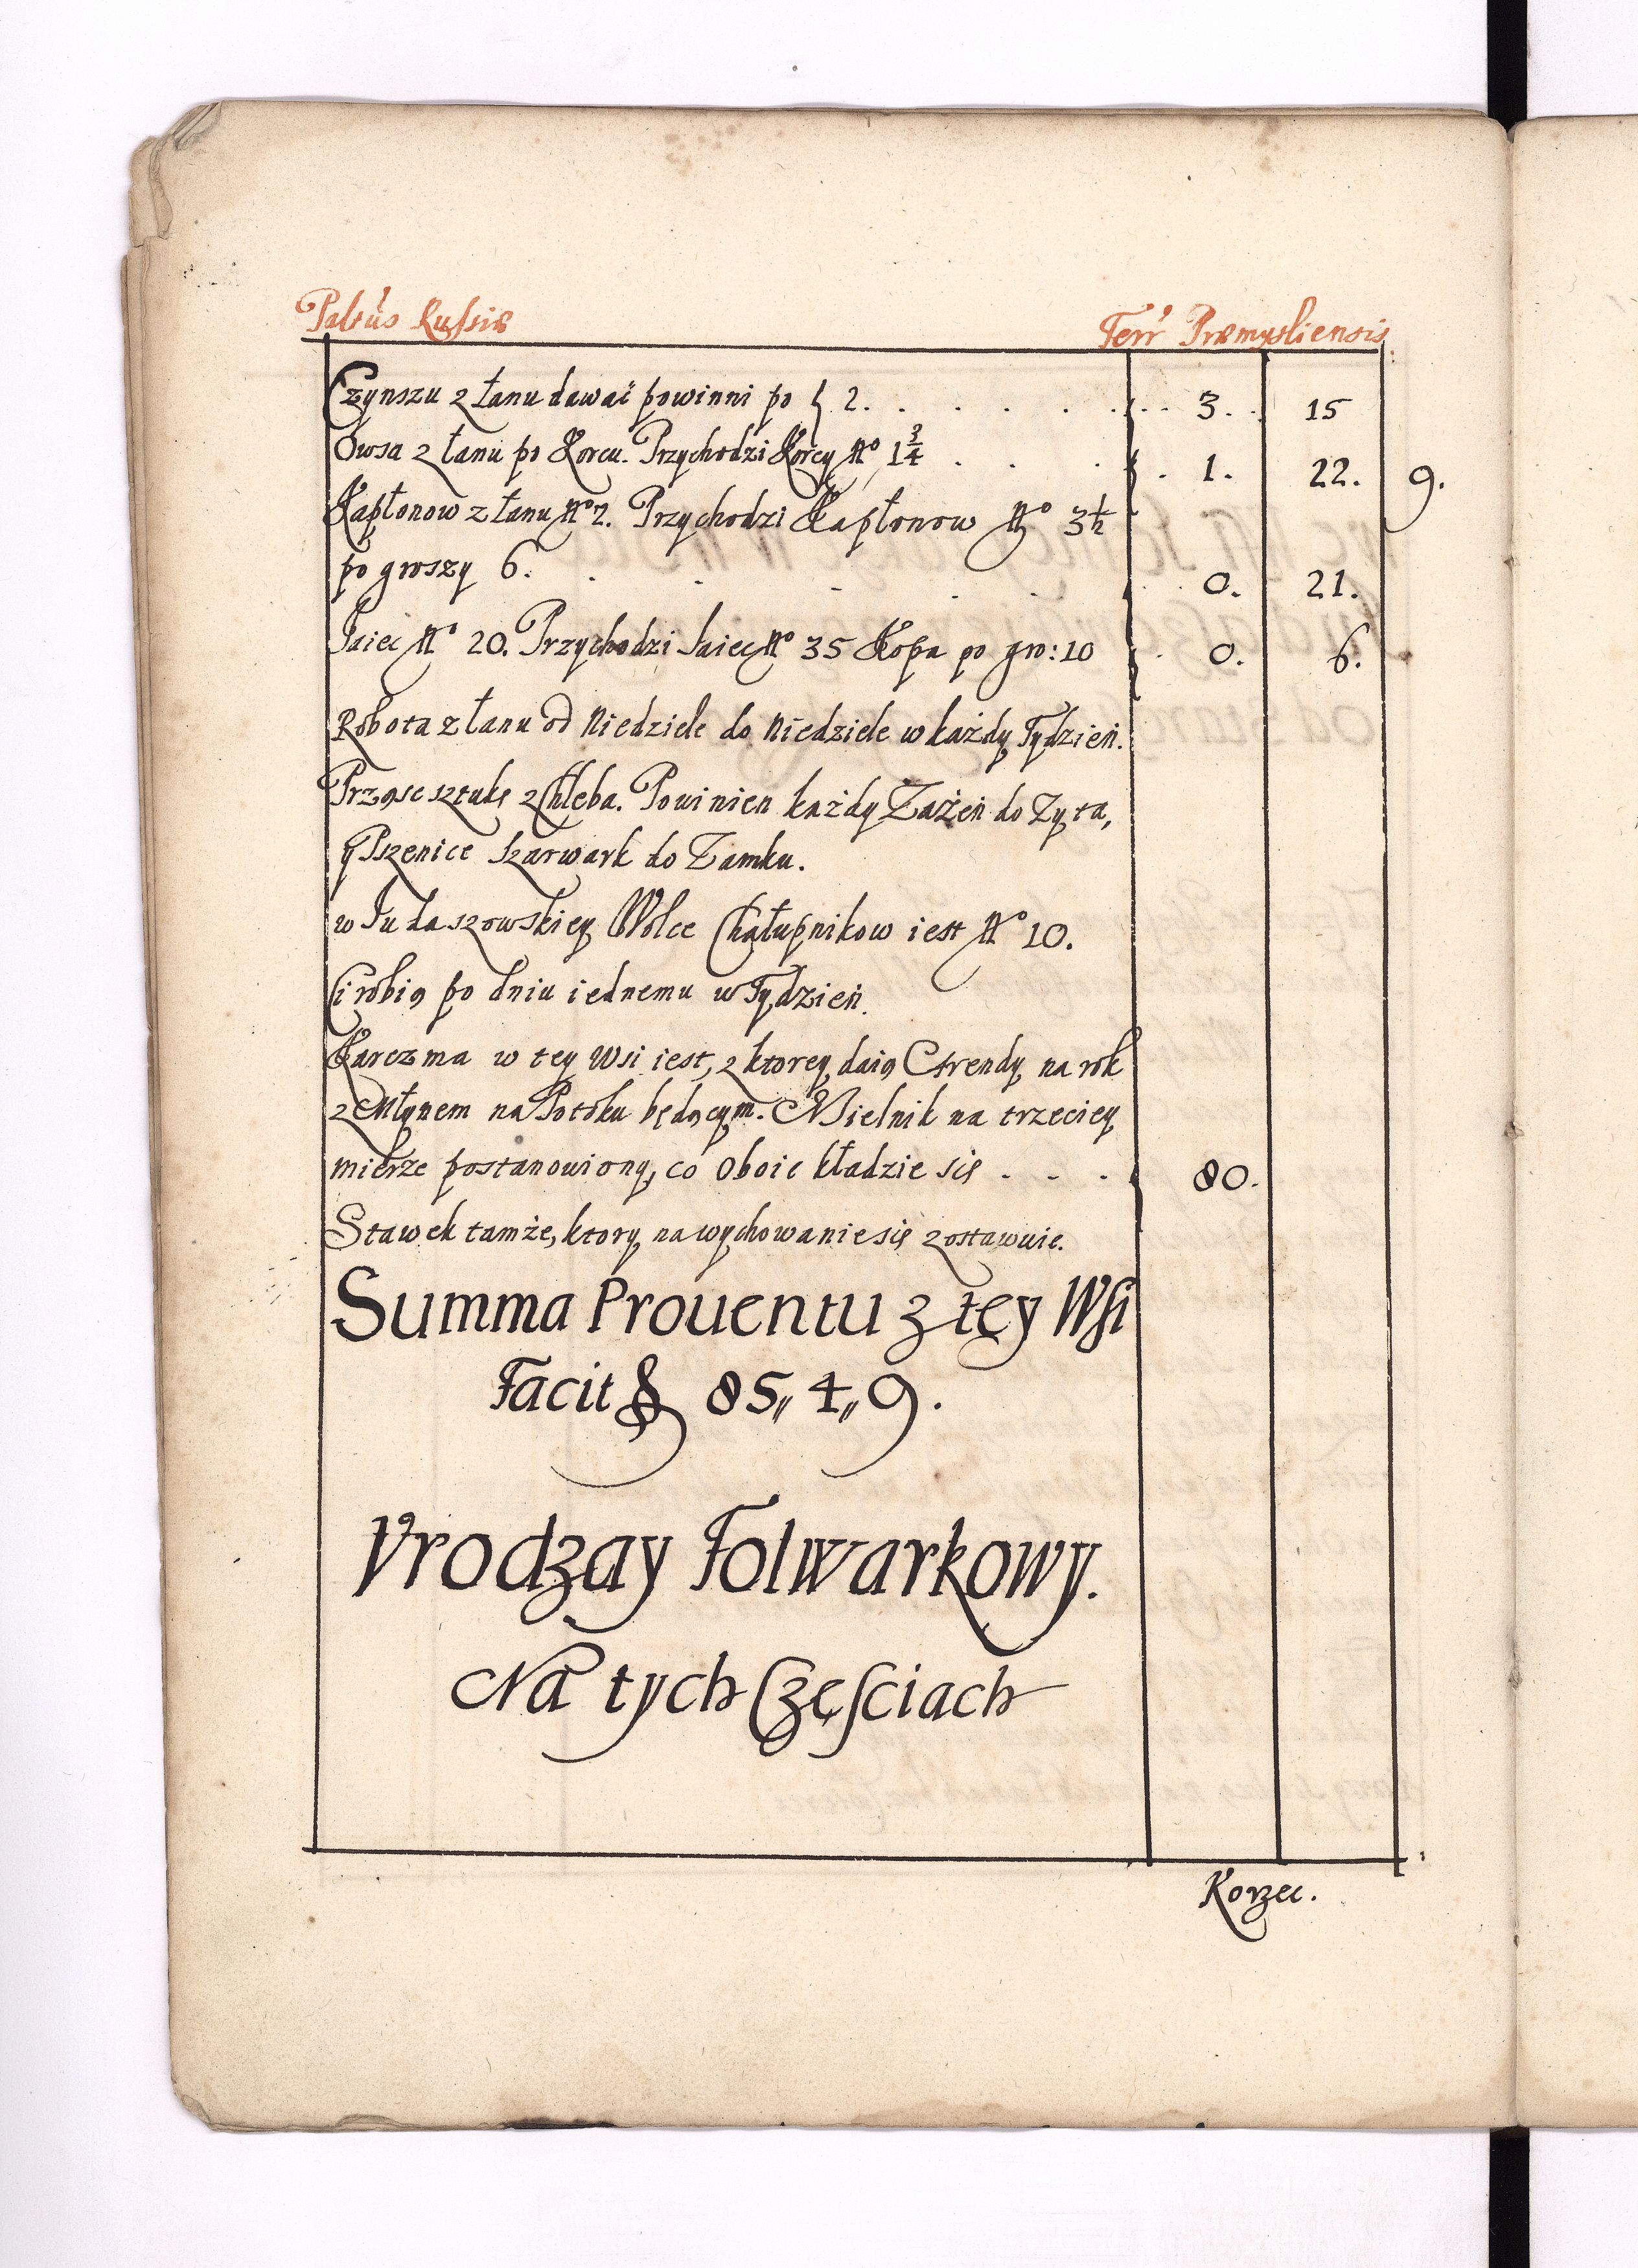 Palt́us Russiæ
Terŕ Præmysliensis.
Czynszu z łanu dawać powinni po ƒ 2. . . . . . . . 3. 15
Owsa z łanu po Korcu. Przychodzi Korcy No 1 3/4 . . . . 1. 22. 9.
Kapłonow z łanu No 2. Przychodzi Kapłonow No 3 1/2
po groszy 6. . . . . . . 0. 21.
Jaiec No 20. Przychodzi Jaiec No 35 Kopa po gro: 10 . 0. 6.
Robota z łanu od Niedziele do Niedziele w każdy Tydzień.
Prząsc sztukę z Chleba. Powinien każdy Zażeń do Zyta,
y Pszenice szarwark do Zamku.
w Judaszowskiey Wolce Chałupnikow iest No 10.
Ci robią po dniu iednemu w Tydzień.
Karczma w tey Wsi iest, z ktorey daią Arendy na rok
z Młynem na Potoku będącym. Mielnik na trzeciey
mierze postanowiony, co oboie kładzie się . . . 80.
Stawek tamże, ktory na wychowanie się zostawuie.
Summa Prouentu z tęy Wsi
Facit ƒ 85,, 4,, 9.
Vrodzay Folwarkowy.
Na tych Częściach
Korzec.